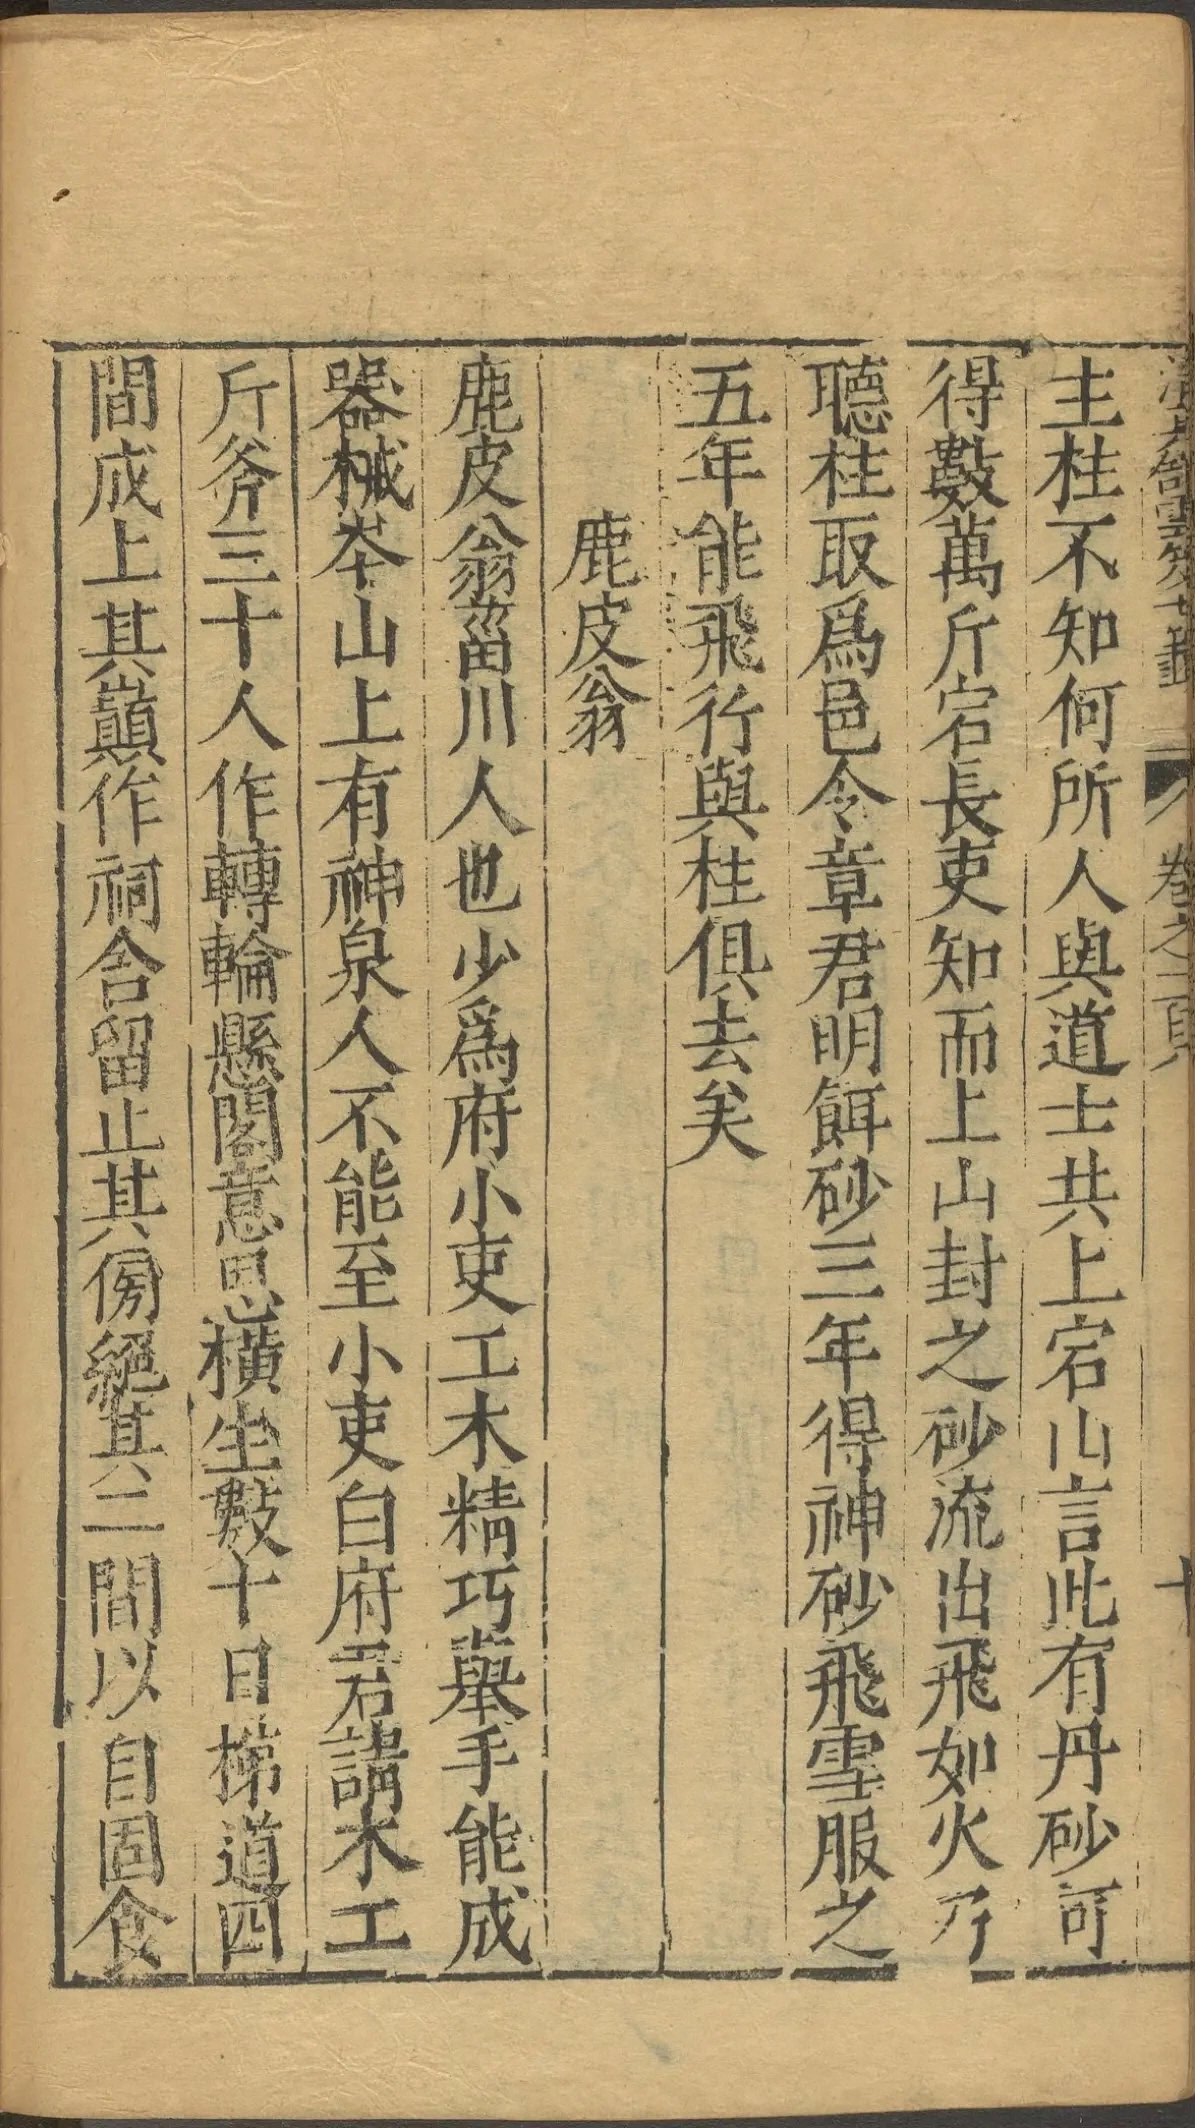 卷之一
十
主柱不知何所人與道士共上宕山言此有丹砂可
得數萬斤宕長吏知而上山封之砂流出飛如火乃
聽柱取爲邑令章君明餌砂三年得神砂飛雪服之
五年能飛行與柱俱去矣
鹿皮翁
鹿皮翁菑川人也少爲府小吏工木精巧舉手能成
器械岑山上有神泉人不能至小吏白府君請木工
斤斧三十人作轉輪懸閣意思橫生數十日梯道四
間成上其巔作祠舍留止其傍絕其二間以自固食